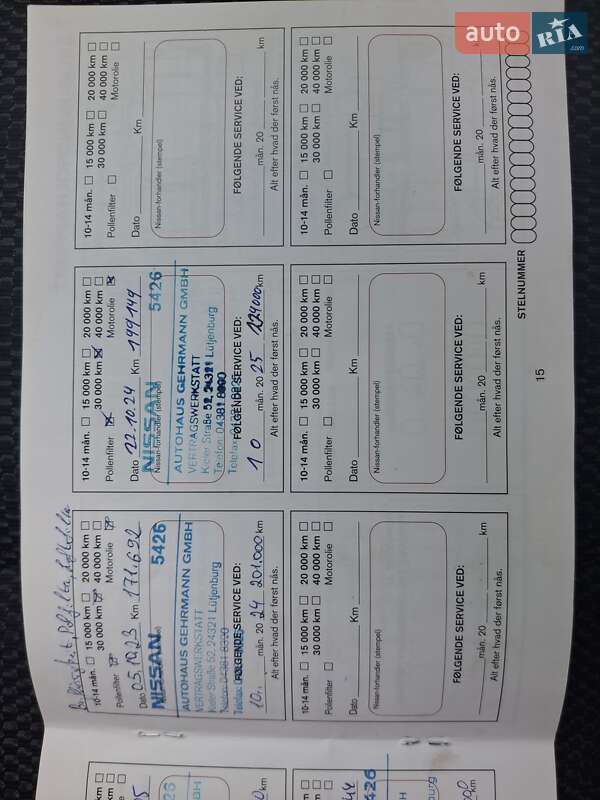 auto RIA .com
10-14 mån. 15 000 km 20 000 km
30 000 km 40 000 km
Pollenfilter Motorolie
Dato 05.10.23 Km 171.692
NISSAN 5426
AUTOHAUS GEHRMANN GMBH
VERTRAGSWERKSTATT
Kieler Straße 52, 24321 Lütjenburg
Telefon: 04381 8900
FØLGENDE SERVICE VED:
10. mån. 20 24 201.000 km
Alt efter hvad der først nås.
10-14 mån. 15 000 km 20 000 km
30 000 km 40 000 km
Pollenfilter Motorolie
Dato 22.10.24 Km 199149
NISSAN 5426
Nissan-forhandler (stempel)
AUTOHAUS GEHRMANN GMBH
VERTRAGSWERKSTATT
Kieler Straße 52, 24321 Lütjenburg
Telefon: 04381 8900
FØLGENDE SERVICE VED:
10 mån. 20 25 229000 km
Alt efter hvad der først nås.
10-14 mån. 15 000 km 20 000 km
30 000 km 40 000 km
Pollenfilter Motorolie
Dato Km
Nissan-forhandler (stempel)
FØLGENDE SERVICE VED:
mån. 20 km
Alt efter hvad der først nås.
10-14 mån. 15 000 km 20 000 km
30 000 km 40 000 km
Pollenfilter Motorolie
Dato Km
Nissan-forhandler (stempel)
FØLGENDE SERVICE VED:
mån. 20 km
Alt efter hvad der først nås.
10-14 mån. 15 000 km 20 000 km
30 000 km 40 000 km
Pollenfilter Motorolie
Dato Km
Nissan-forhandler (stempel)
FØLGENDE SERVICE VED:
mån. 20 km
Alt efter hvad der først nås.
10-14 mån. 15 000 km 20 000 km
30 000 km 40 000 km
Pollenfilter Motorolie
Dato Km
Nissan-forhandler (stempel)
FØLGENDE SERVICE VED:
mån. 20 km
Alt efter hvad der først nås.
STELNUMMER
15
20 000 km
40 000 km
Motorolie
5426
GMBH
km
5426